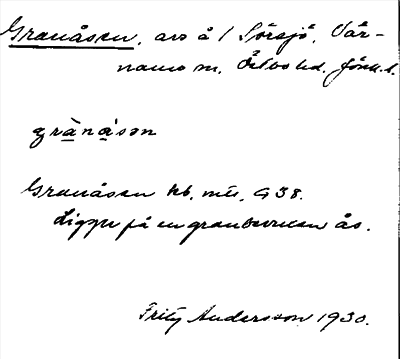 Granåsen, avs å 1 Sörsjö, Vär-
namo sn, Östbo hd. Jönk. l.
grànàsən
Granåsen hb. mtl. G 38.
Ligger på en granbevuxen ås.
Fritz Andersson 1930.